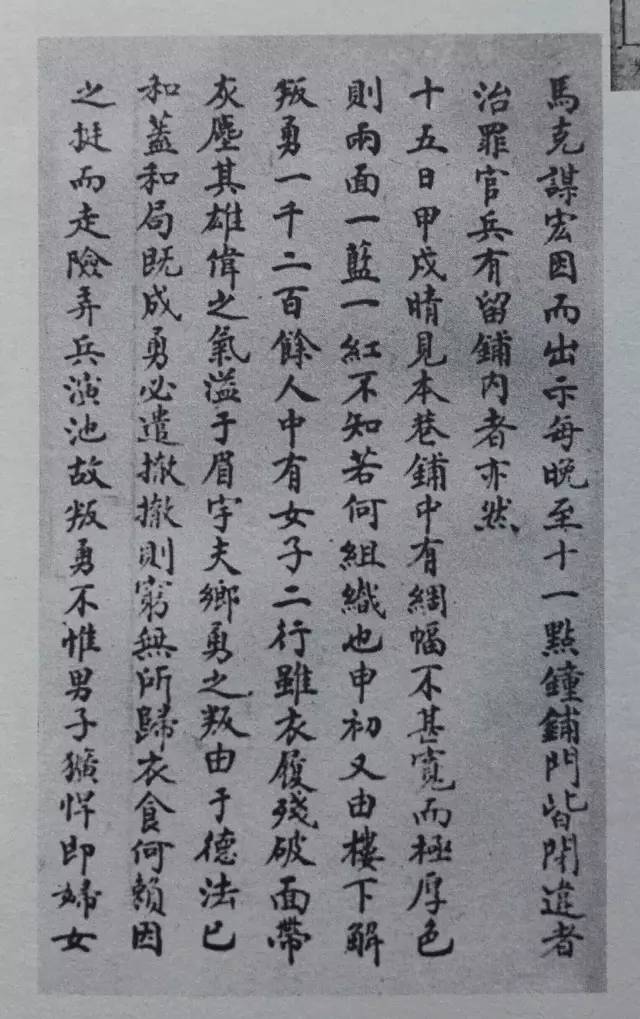 馬克謀宏因而出示每晚至十一點鐘鋪門皆閉違者
治罪官兵有留鋪内者亦然
十五日甲戌晴見本巷鋪中有綢幅不甚寬而極厚色
則兩面一藍一紅不知若何組織也申初又由樓下解
叛勇一千二百餘人中有女子二行雖衣履殘破面帶
灰塵其雄偉之氣溢于眉宇夫鄉勇之叛由于德法已
和蓋和局既成勇必遣撤撤則窮無所歸衣食何賴因
之挺而走險弄兵演池故叛勇不惟男子獷悍即婦女